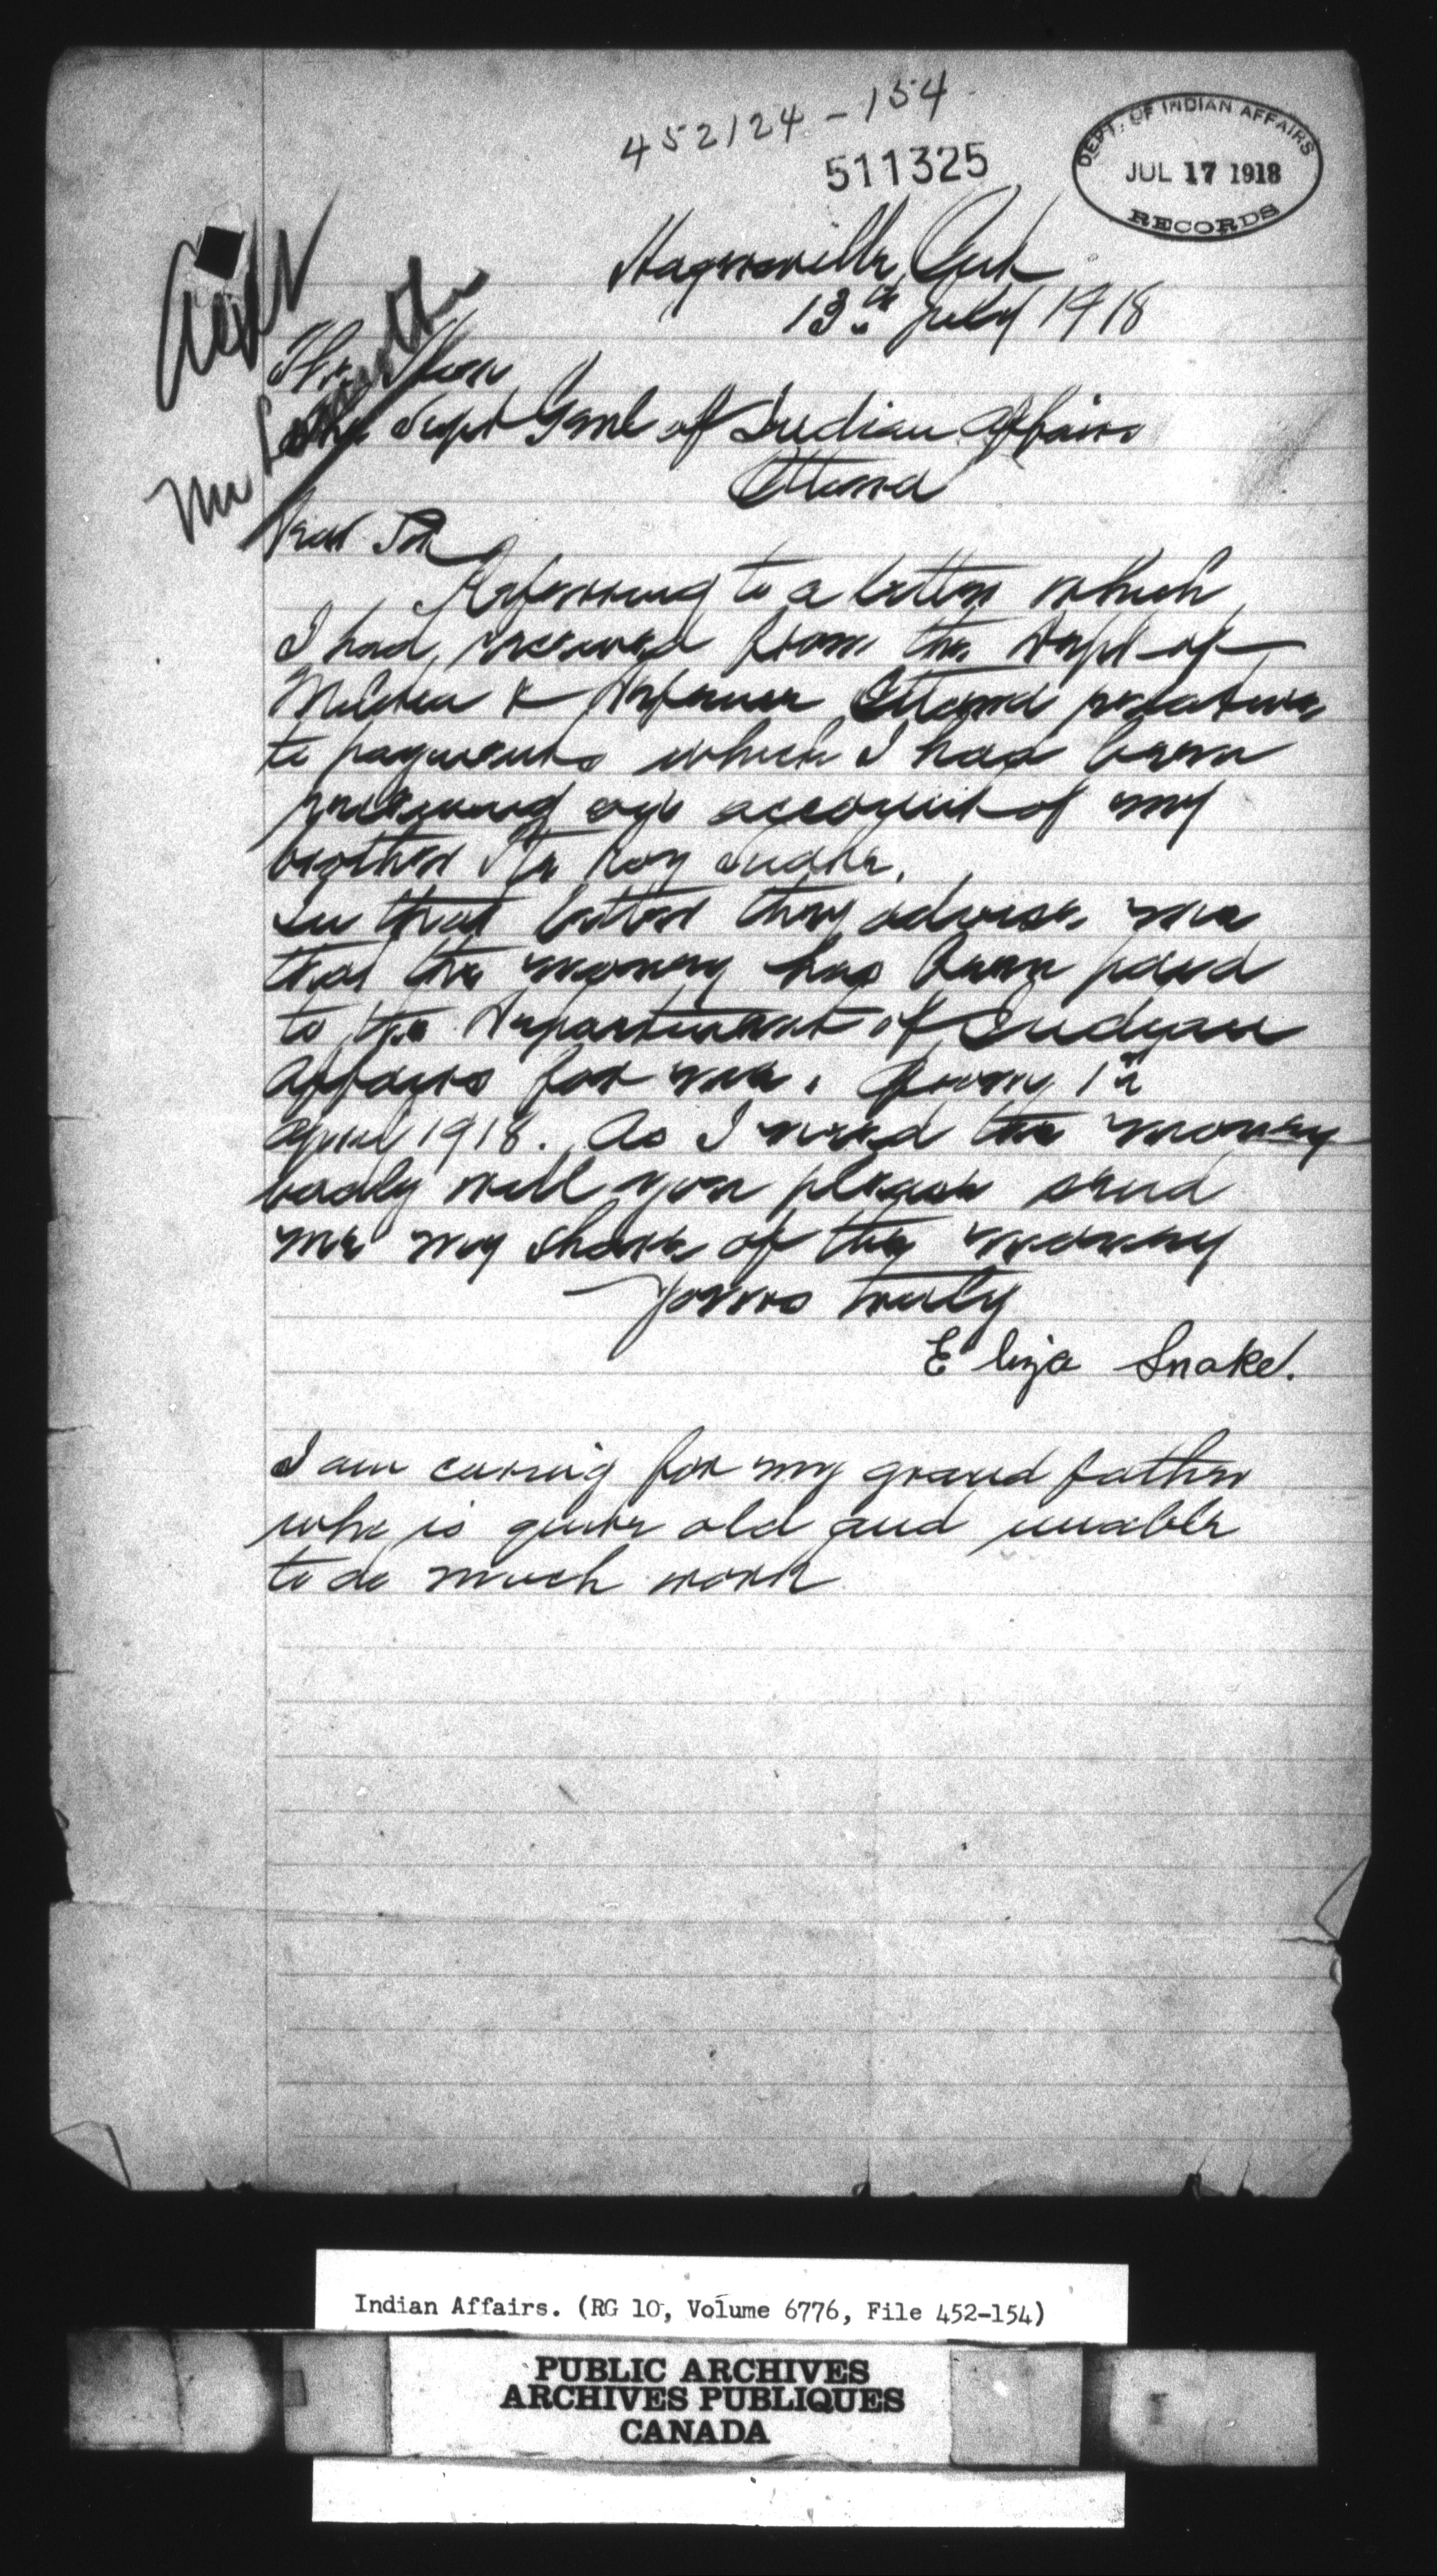 452124-154
511325
DEPT. OF INDIAN AFFAIRS
JUL 17 1918
RECORDS
Hagersville, Ont
13th July 1918
The Hon
The Supt Genl of Indian Affairs
Ottawa
Dear Sir
Referring to a letter which
I had received from the Dept of
Militia & Defence Ottawa relative
to payments which I had been
receiving on account of my
brother Pte Roy Snake.
In that letter they advise me
that the money has been paid
to the Department of Indian
Affairs for me. from 1st
April 1918. As I need the money
badly will you please send
me my share of the money
Yours truly
Eliza Snake.
I am caring for my grand father
who is quite old and unable
to do much work
Indian Affairs. (RG 10, Volume 6776, File 452-154)
PUBLIC ARCHIVES
ARCHIVES PUBLIQUES
CANADA